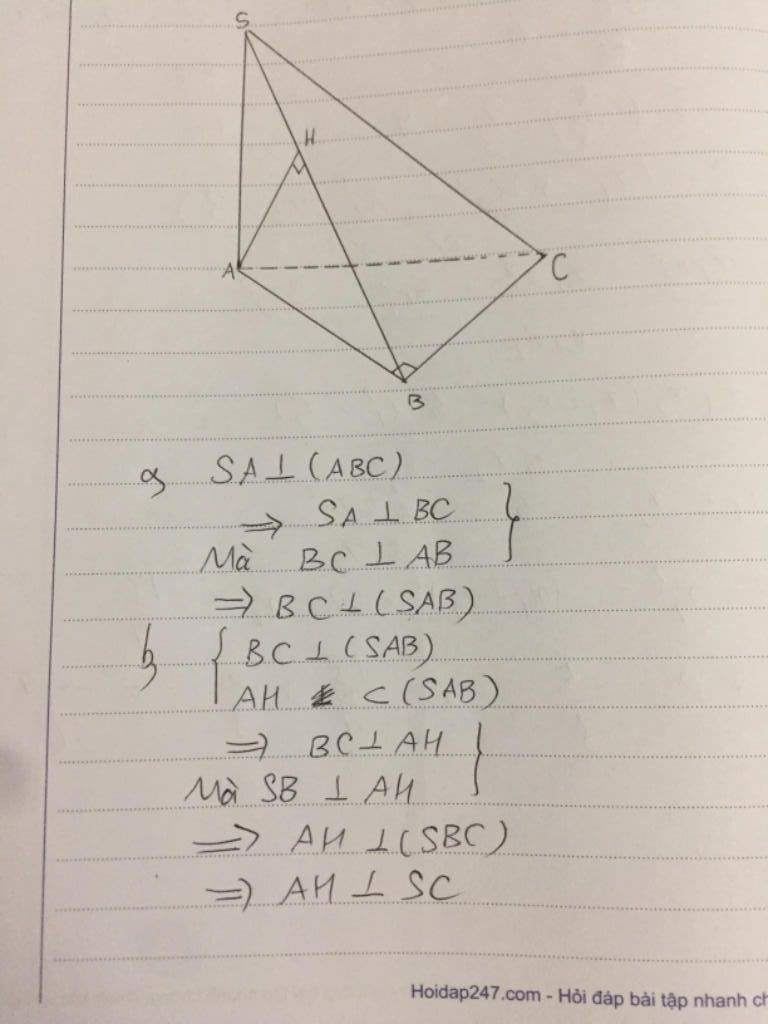 S
H
A
C
B
a, SA ⊥ (ABC)
⇒ SA ⊥ BC }
Mà BC ⊥ AB
⇒ BC ⊥ (SAB)
b, { BC ⊥ (SAB)
AH ⊂ (SAB)
⇒ BC ⊥ AH }
Mà SB ⊥ AH
⇒ AH ⊥ (SBC)
⇒ AH ⊥ SC
Hoidap247.com - Hỏi đáp bài tập nhanh ch